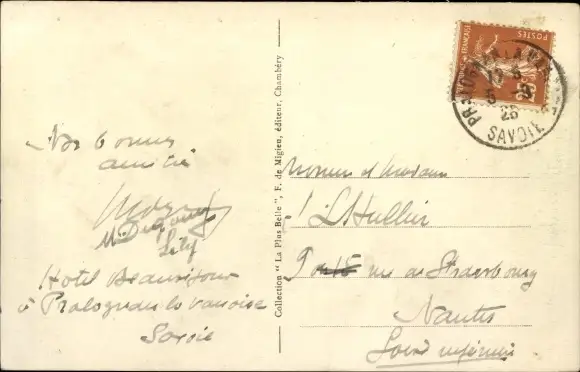 Nos bonnes
amitiés
Hotel Beauséjour
à Pralognan la Vanoise
Savoie
Collection "La Plus Belle", F. de Migieu, éditeur, Chambéry
POSTES
FRANÇAISE
PRALOGNAN LA VANOISE
SAVOIE
Monsieur et Madame
L'Hullier
rue de Strasbourg
Nantes
Loire inférieure